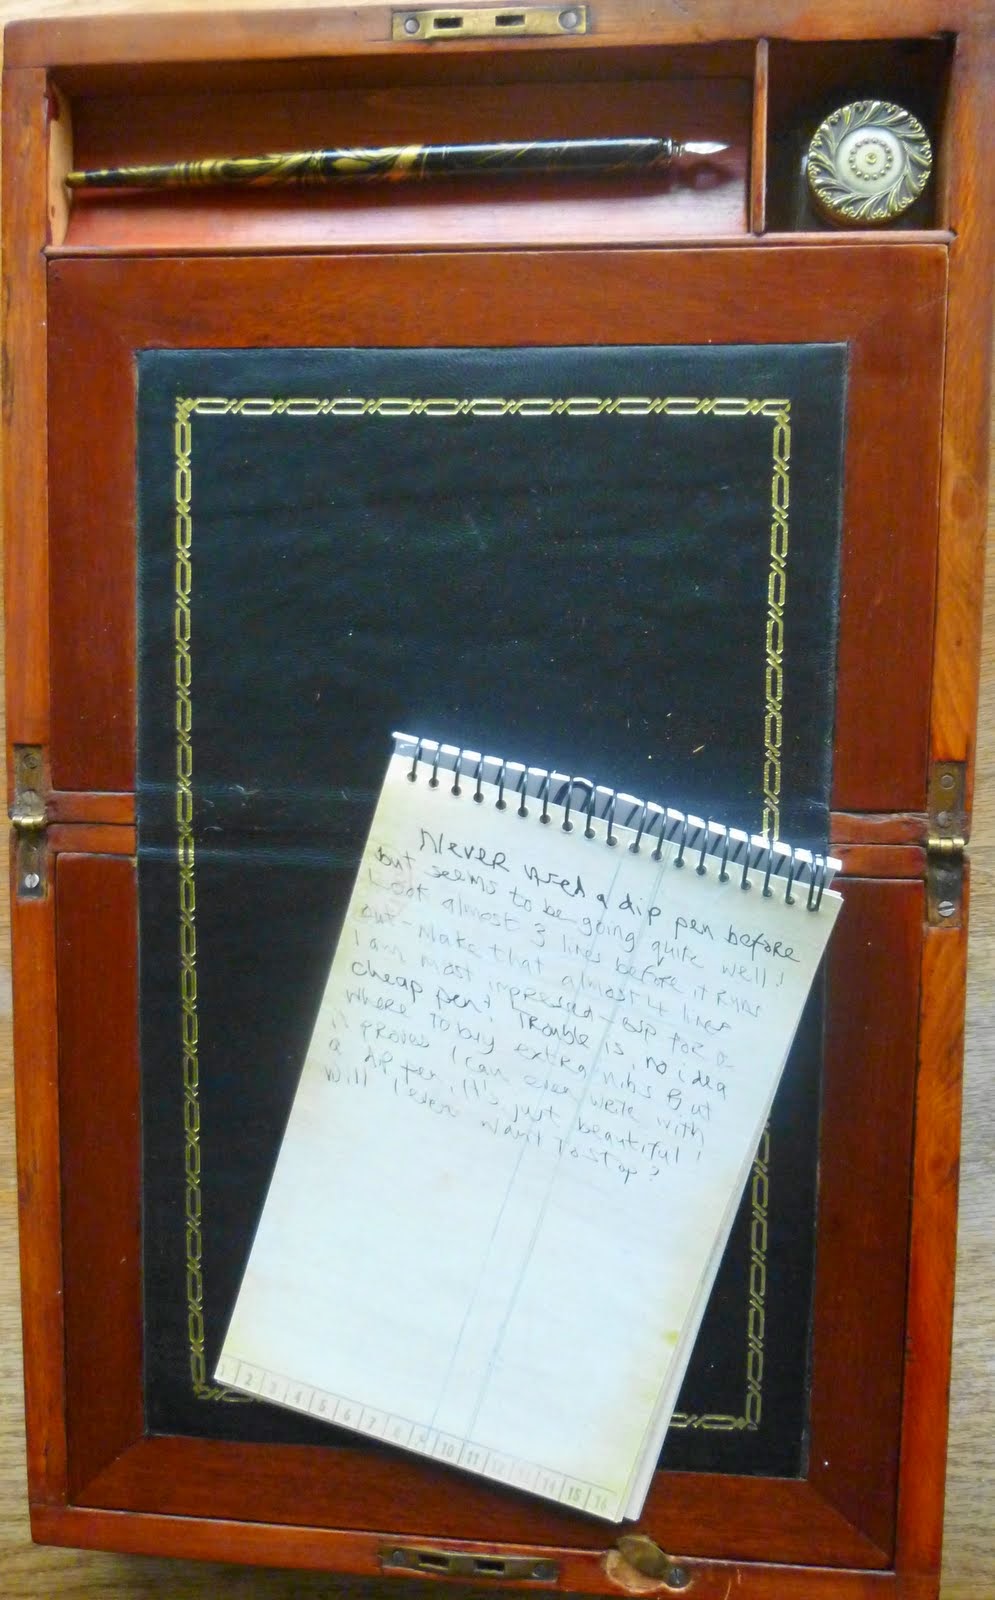 Never used a dip pen before
but seems to be going quite well!
Look almost 3 lines before it runs
out - Make that almost 4 lines
I am most impressed - esp for a
cheap pen! Trouble is, no idea
where to buy extra nibs but
it proves I can even write with
a dip pen. It's just beautiful!
Will I ever want to stop?
1 2 3 4 5 6 7 8 9 10 11 12 13 14 15 16